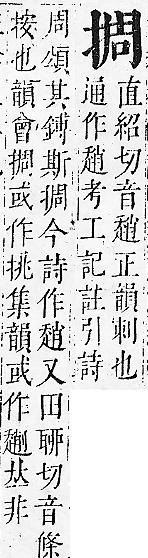 㨄
直紹切音趙正韻刺也
通作趙考工記註引詩
周頌其鎛斯㨄今詩作趙又田聊切音條
按也韻會㨄或作挑集韻或作𠀤非